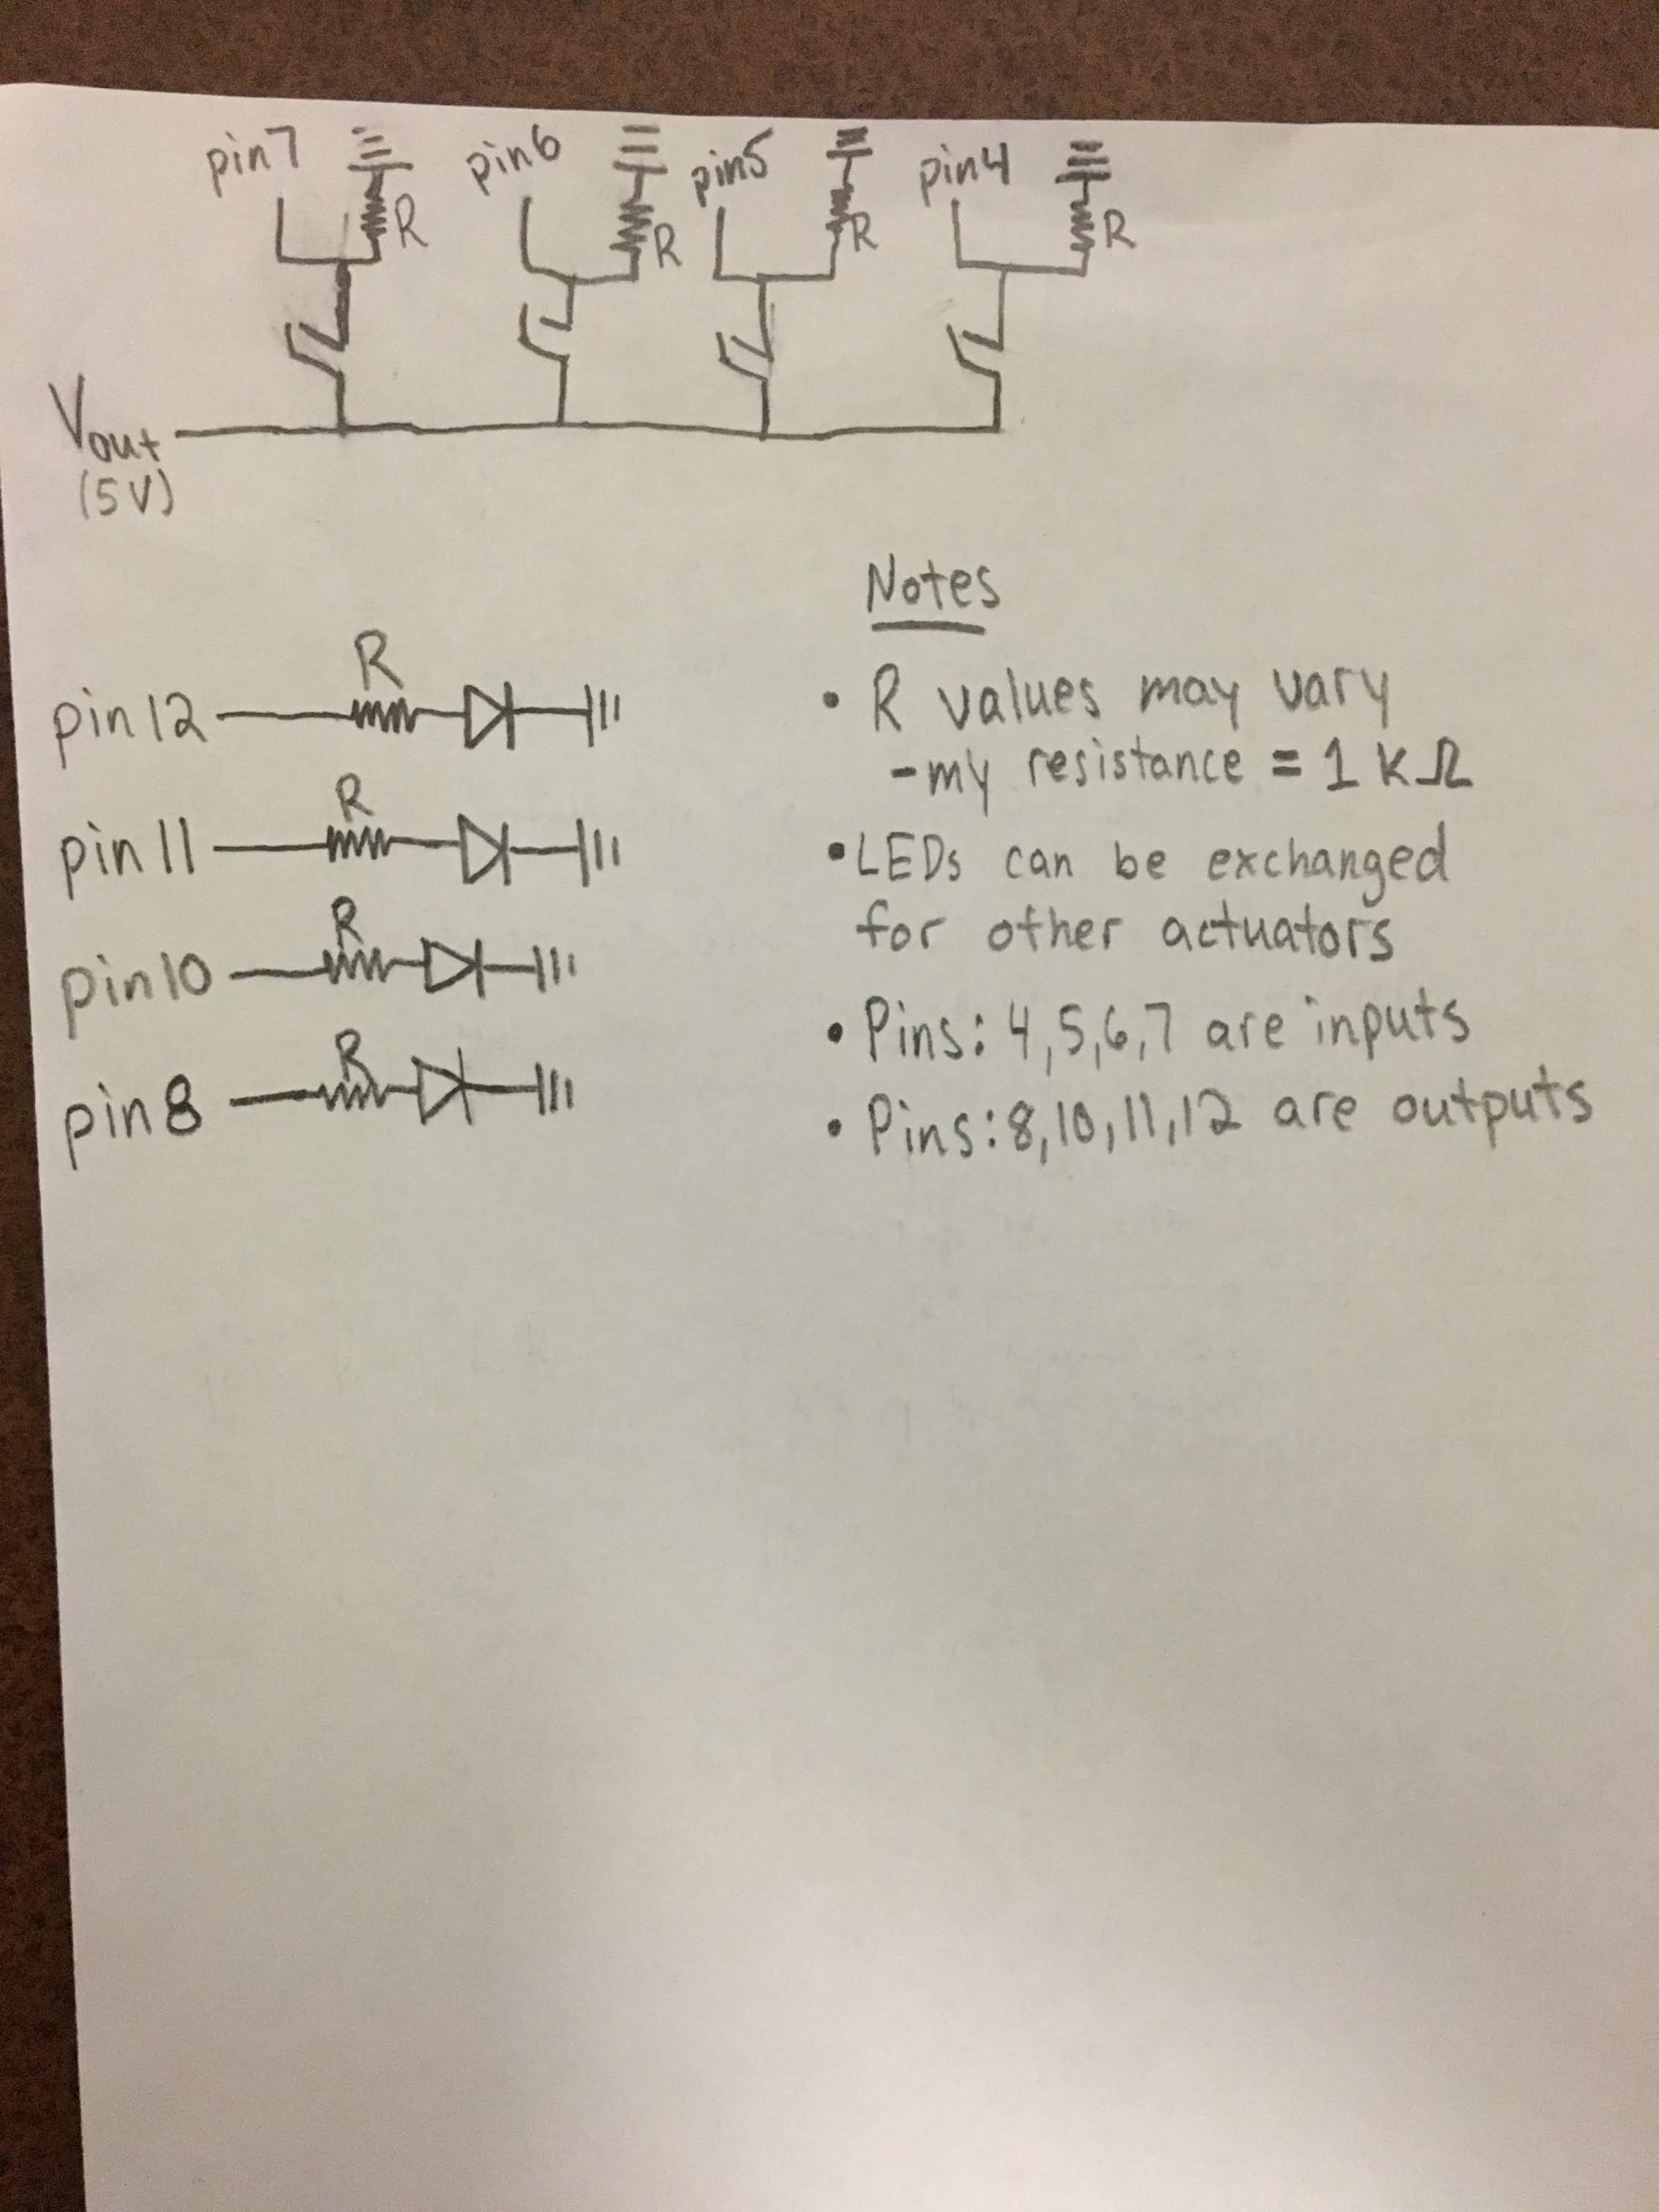 pin7 pin6 pin5 pin4
R R R R
Vout
(5V)
R
pin12
R
pin11
R
pin10
R
pin8
Notes
• R values may vary
-my resistance = 1 kΩ
• LEDs can be exchanged
for other actuators
• Pins: 4,5,6,7 are inputs
• Pins: 8,10,11,12 are outputs